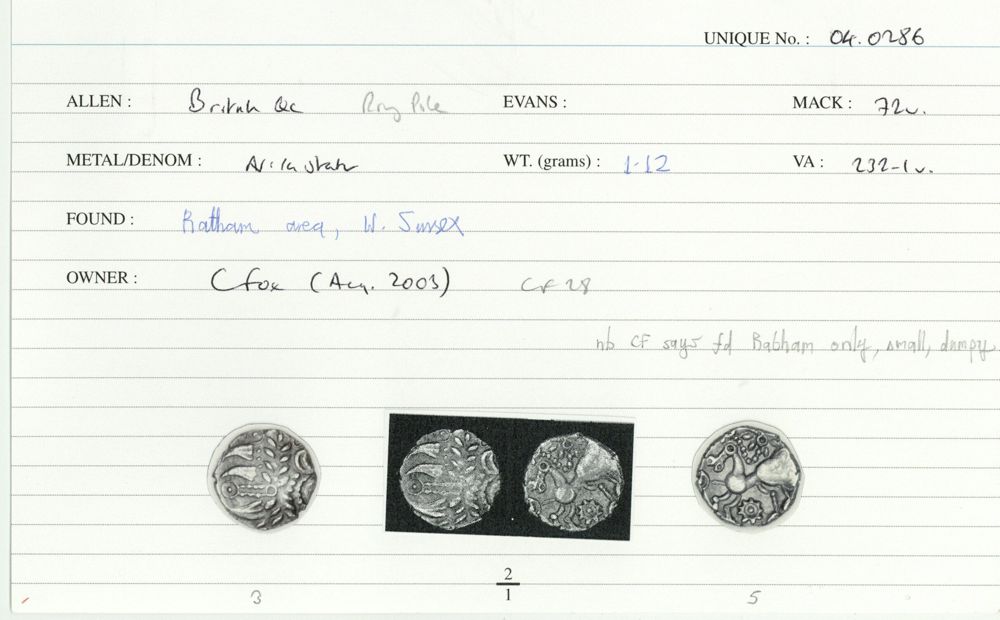 UNIQUE No. : 04.0286
ALLEN : British Qc EVANS : MACK : 72v.
METAL/DENOM : WT. (grams) : 1.12 VA : 232-1v.
FOUND : Ratham area, W. Sussex
OWNER : C Fox (Aug. 2003) CF 28
nb CF says fd Ratham only, small, dumpy
2
1
3 5